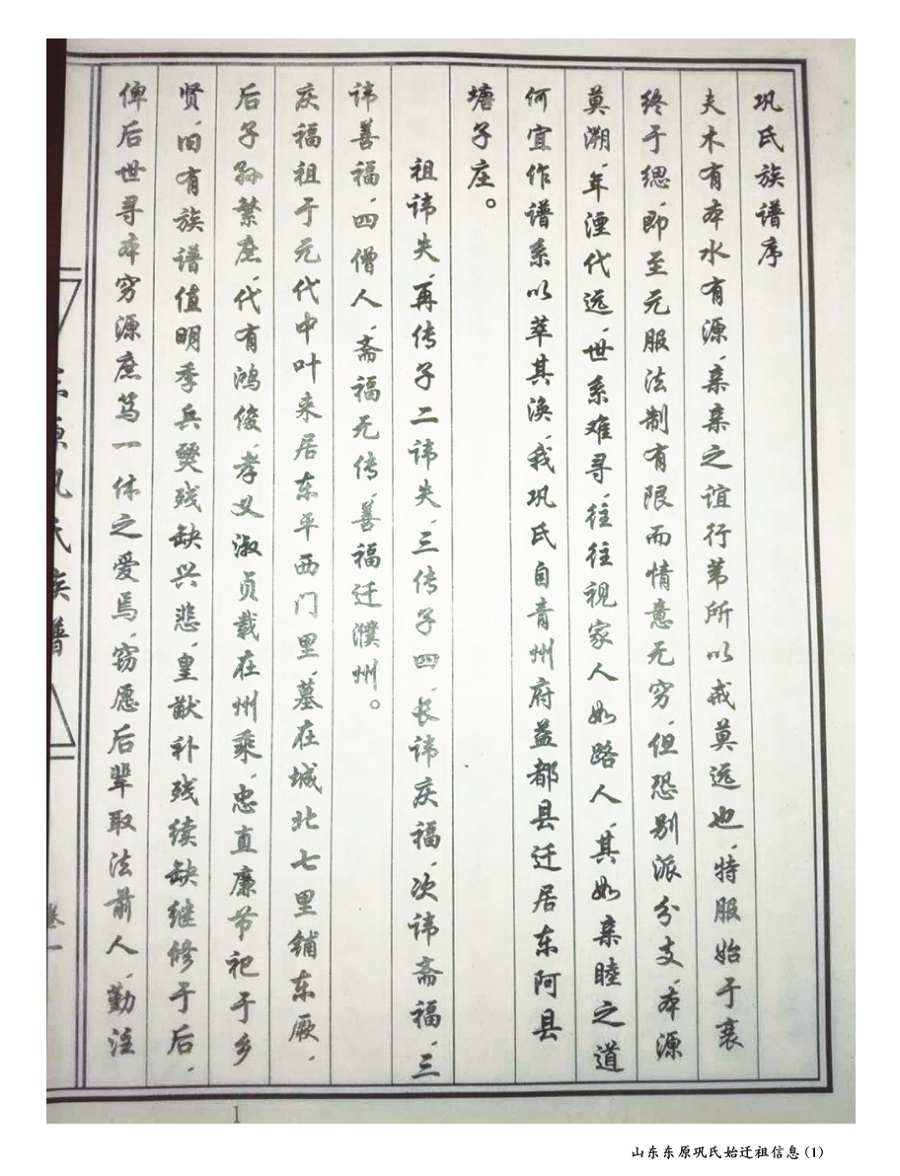 巩氏族谱序
夫木有本水有源，亲亲之谊行苇所以戒莫远也，特服始于衰
终于缌，即至元服法制有限而情意无穷，但恐别派分支，本源
莫溯，年湮代远，世系难寻，往往视家人如路人，其如亲睦之道
何宜作谱系以萃其涣，我巩氏自青州府益都县迁居东阿县
塘子庄。
祖讳失，再传子二讳失，三传子四，长讳庆福，次讳斋福，三
讳善福，四僧人，斋福无传，善福迁濮州。
庆福祖于元代中叶来居东平西门里，墓在城北七里铺东，厥
后子孙繁庶，代有鸿俊，孝义淑贞载在州乘，忠直廉节祀于乡
贤，旧有族谱值明季兵燹残缺兴悲，皇猷补残续缺继修于后，
俾后世寻本穷源庶笃一体之爱焉，窃愿后辈取法前人，勤注
东原巩氏族谱
卷一
1
山东东原巩氏始迁祖信息(1)